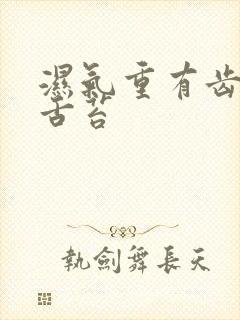 濕氣重有齿
古苔
執劍舞長天